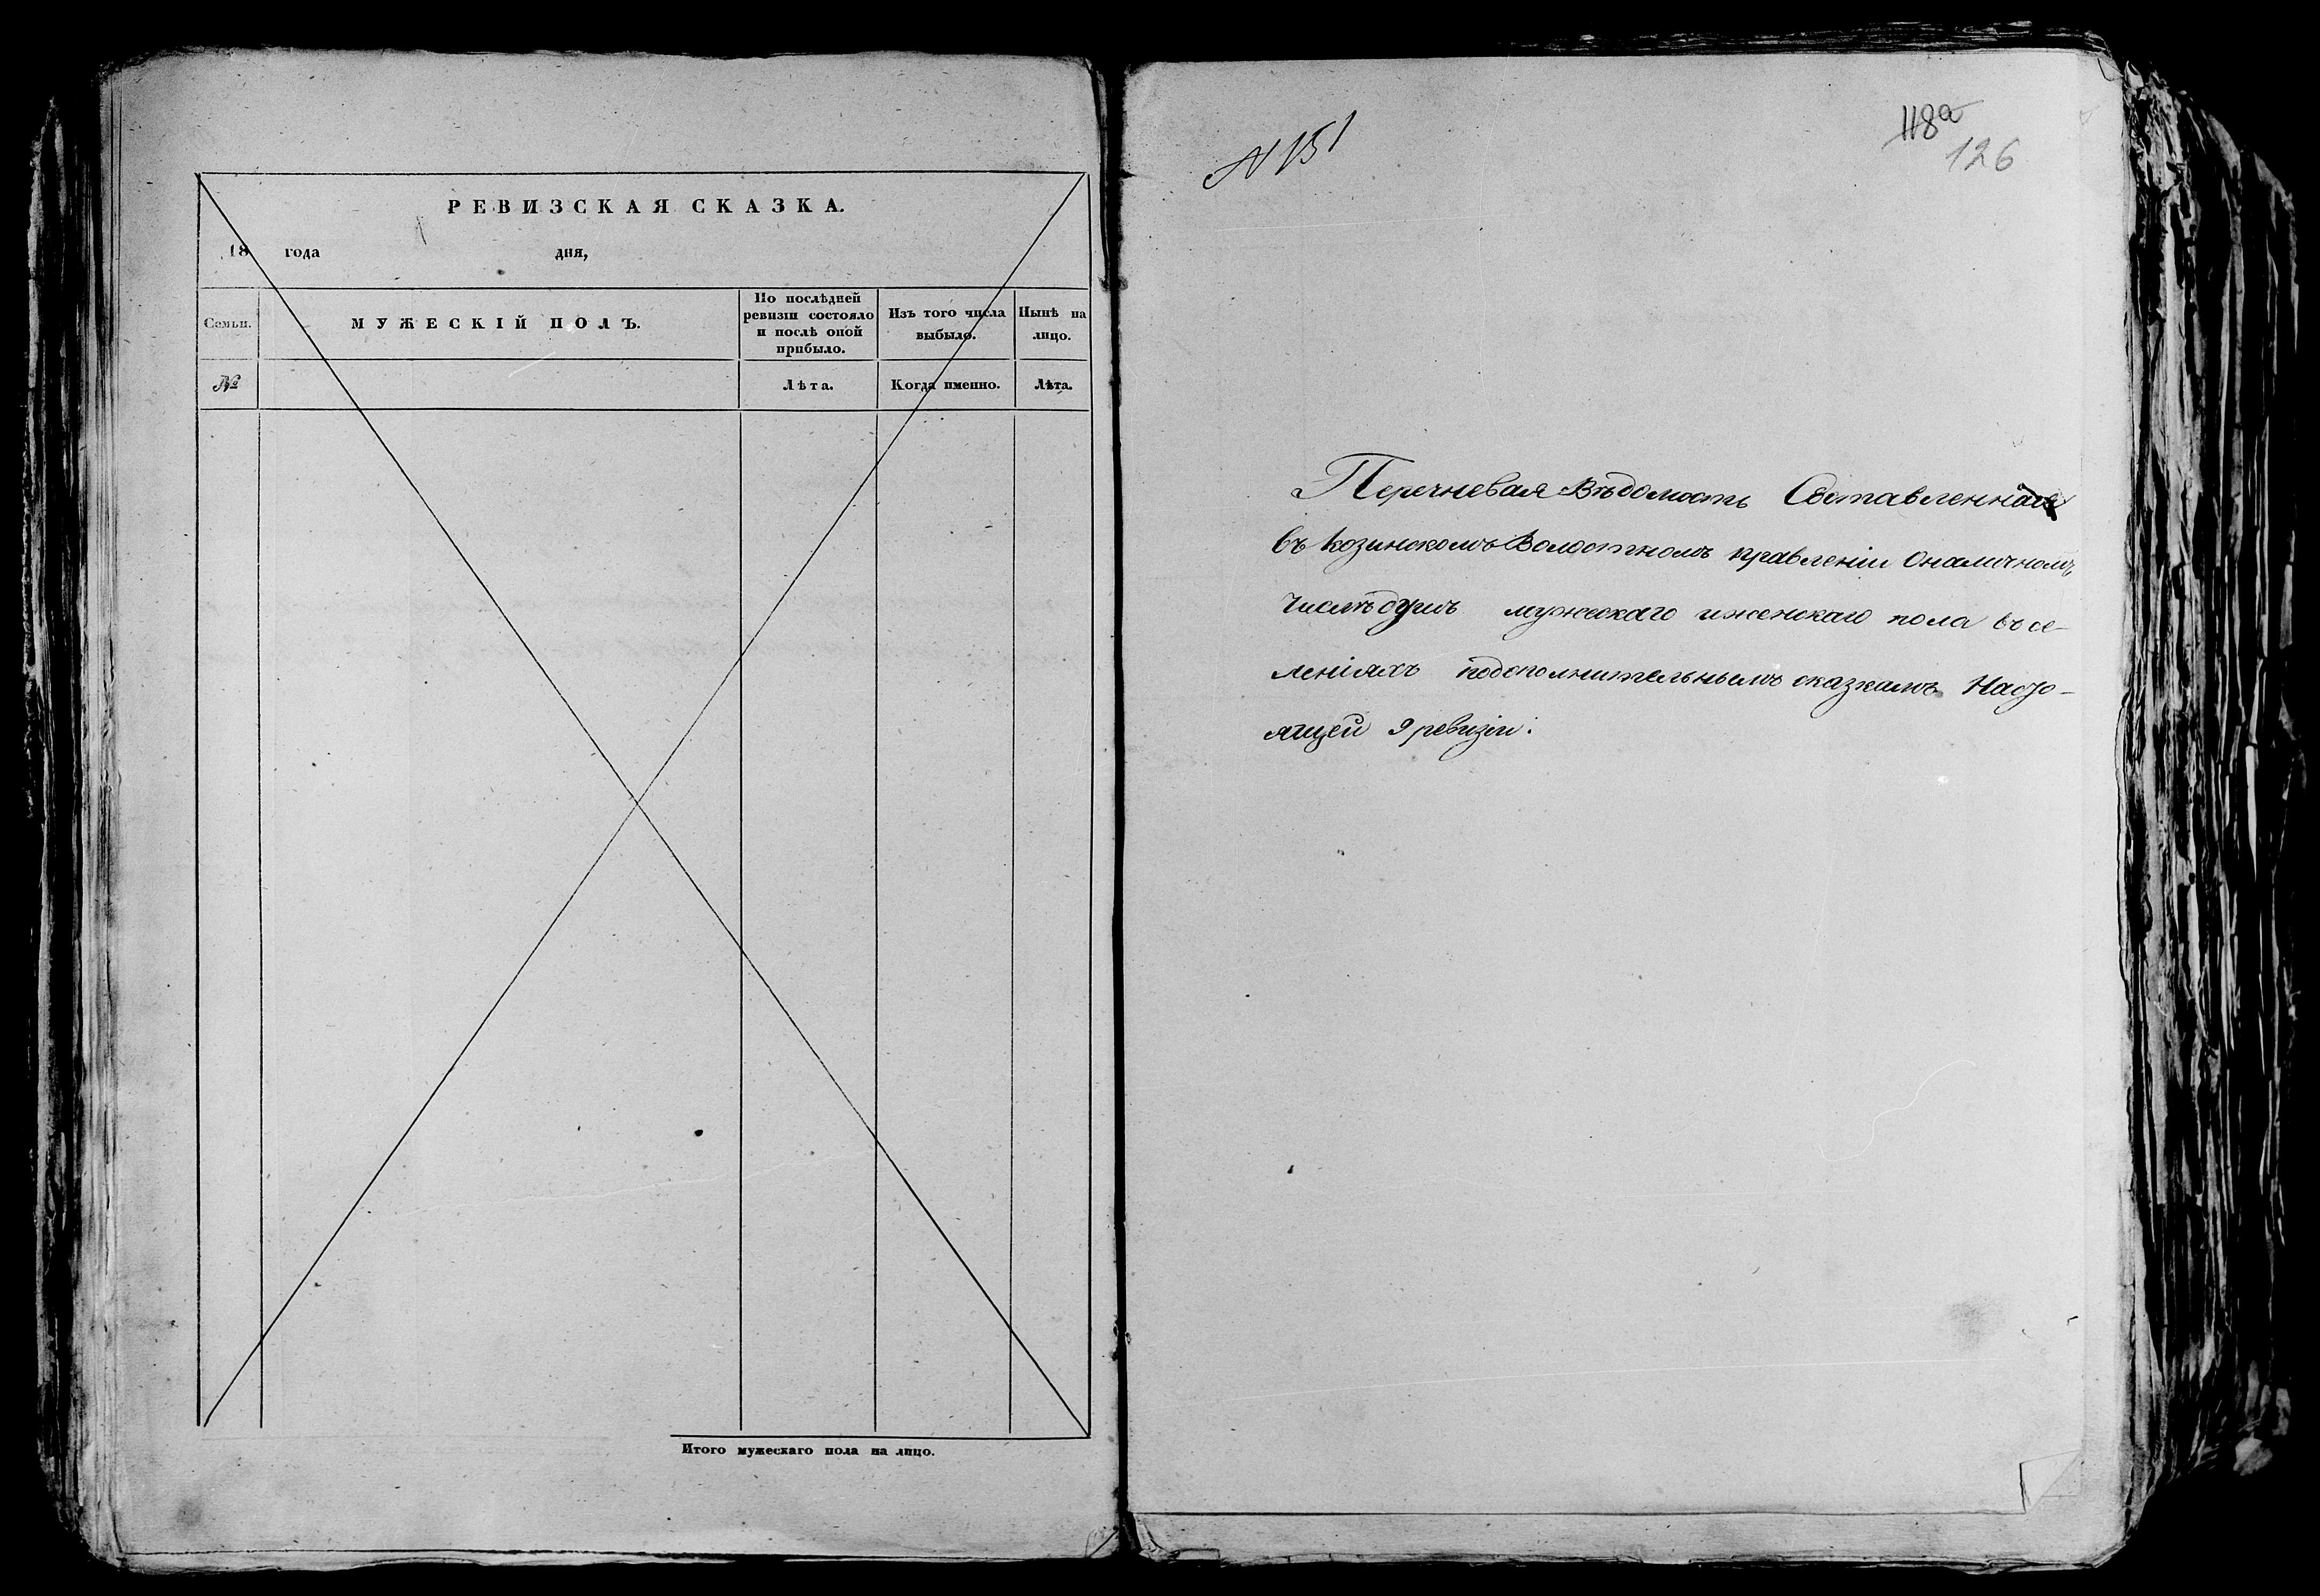 РЕВИЗСКАЯ СКАЗКА.
18 года дня,
Семьи.
МУЖЕСКІЙ ПОЛЪ.
По послѣдней
ревизіи состояло
и послѣ оной
прибыло.
Изъ того числа
выбыло.
Нынѣ на
лицо.
№
Лѣта.
Когда именно.
Лѣта.
Итого мужескаго пола на лицо.
N 151
118а
126
Перечневая Вѣдомость Составленная
въ Козинскомъ Волостномъ правленіи Оналичномъ
Числѣ душъ мужескаго иженскаго пола въ се-
леніяхъ подополнительнымъ сказкамъ Насто-
ящей 9 ревизіи.